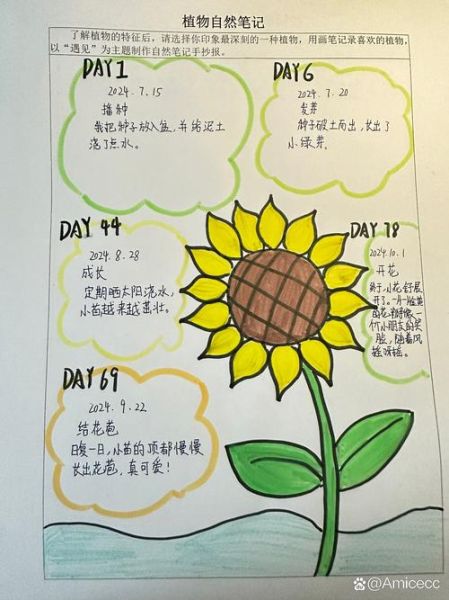 植物自然笔记
了解植物的特征后，请选择你印象最深刻的一种植物，用画笔记录喜欢的植物，
以“遇见”为主题制作自然笔记手抄报。
DAY 1
2024.7.15
播种
我把种子放入盆，并给泥土
浇了点水。
DAY 6
2024.7.20
发芽
种子破土而出，长出了
小绿芽。
DAY 44
2024.8.28
成长
定期晒太阳浇水，
小苗越来越茁壮。
DAY 78
2024.10.1
开花
终于，小花舒展
开了。一
个小朋友的笑
脸，随着风
摇呀摇。
DAY 69
2024.9.22
结花苞
日复一日，小苗的顶部慢慢
长出花苞，真可爱！
@Amicecc